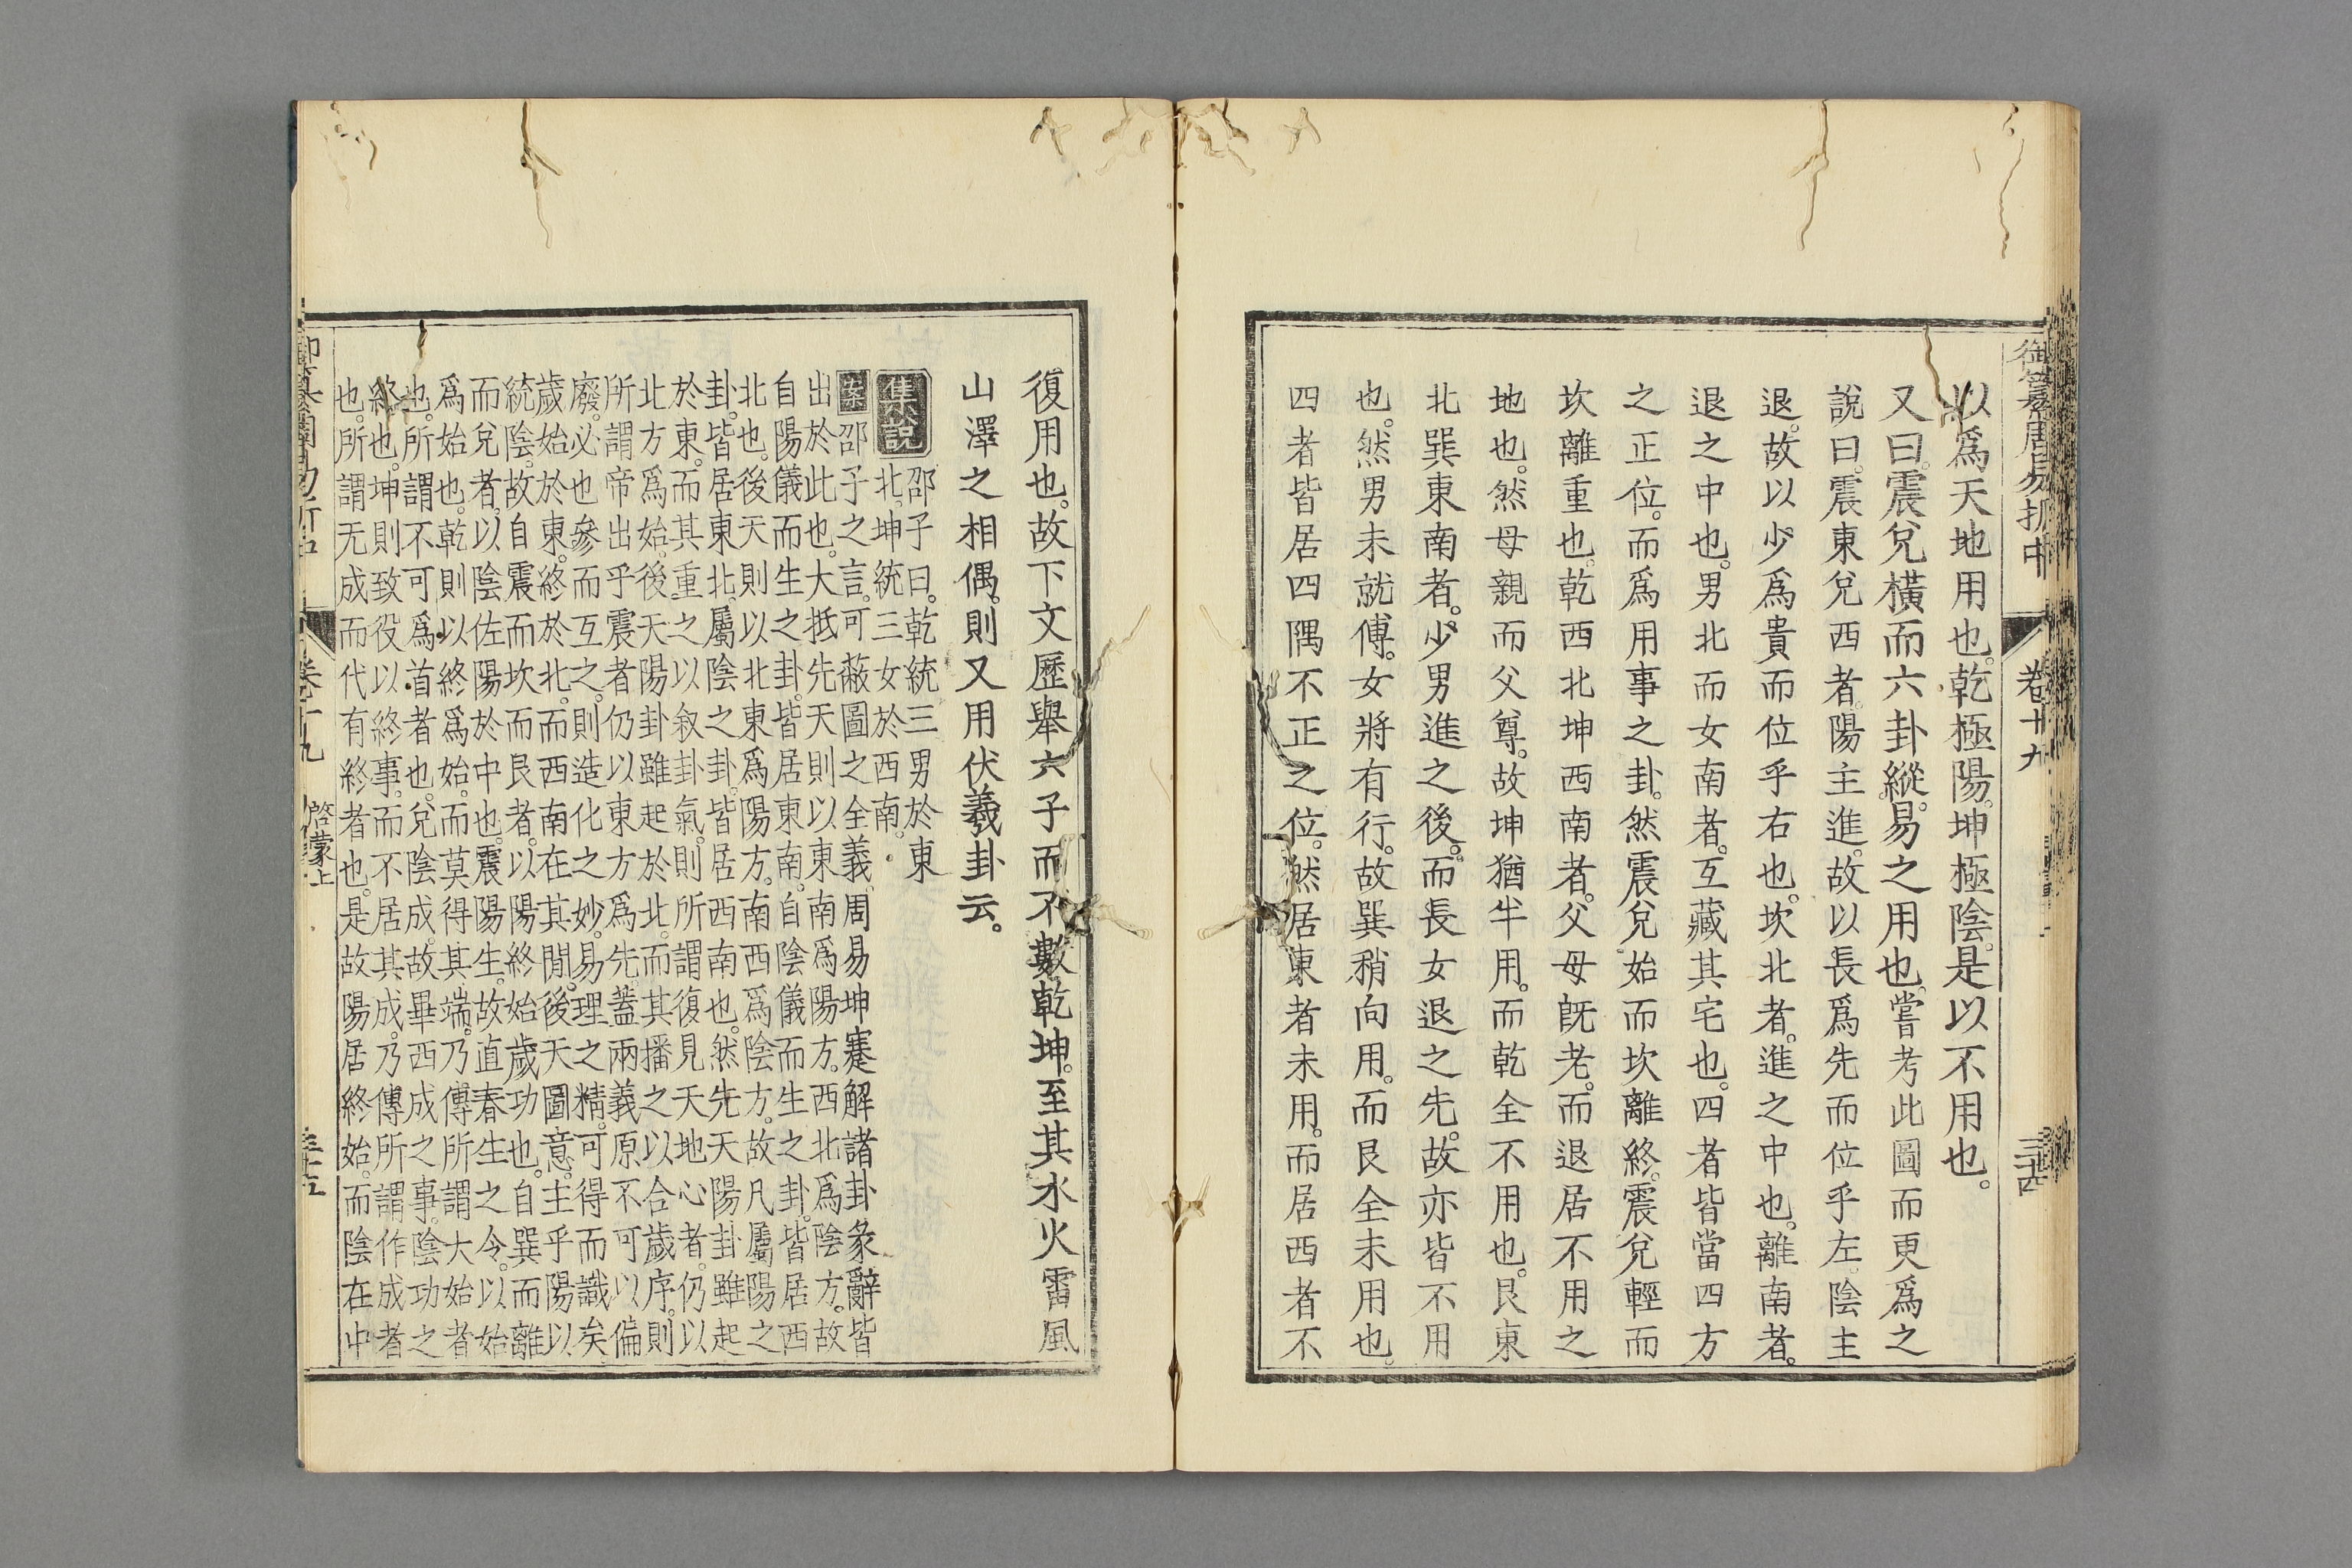 御纂周易折中
卷十九
三十四
以爲天地用也。乾極陽。坤極陰。是以不用也。
又曰。震兌橫而六卦縱。易之用也。嘗考此圖而更爲之
說曰。震東兌西者。陽主進。故以長爲先而位乎左。陰主
退。故以少爲貴而位乎右也。坎北者。進之中也。離南者。
退之中也。男北而女南者。互藏其宅也。四者皆當四方
之正位。而爲用事之卦。然震兌始而坎離終。震兌輕而
坎離重也。乾西北坤西南者。父母旣老。而退居不用之
地也。然母親而父尊。故坤猶半用。而乾全不用也。艮東
北巽東南者。少男進之後。而長女退之先。故亦皆不用
也。然男未就傅。女將有行。故巽稍向用。而艮全未用也。
四者皆居四隅不正之位。然居東者未用。而居西者不
復用也。故下文歷舉六子而不數乾坤。至其水火雷風
山澤之相偶。則又用伏羲卦云。
集說
邵子曰。乾統三男於東
北。坤統三女於西南。
案邵子之言。可蔽圖之全義。周易坤蹇解諸卦彖辭皆
出於此也。大抵先天則以東南爲陽方。西北爲陰方。故
自陽儀而生之卦。皆居東南。自陰儀而生之卦。皆居西
北也。後天則以北東爲陽方。南西爲陰方。故凡屬陽之
卦。皆居東北。屬陰之卦。皆居西南也。然先天陽卦雖起
於東。而其重之以叙卦氣。則所謂復見天地心者。仍以
北方爲始。後天陽卦雖起於北。而其播之以合歲序。則
所謂帝出乎震者仍以東方爲先。蓋兩義原不可以偏
廢。必也參而互之。則造化之妙。易理之精。可得而識矣
歲始於東。終於北。而西南在其閒。後天圖意。主乎陽以
統陰。故自震而坎而艮者。以陽終始歲功也。自巽而離
而兌者。以陰佐陽於中也。震陽生。故直春生之令。以始
爲始也。乾則以終爲始。而莫得其端。乃傳所謂大始者
也。所謂不可爲首者也。兌陰成。故畢西成之事。陰功之
終也。坤則致役以終事。而不居其成。乃傳所謂作成者
也。所謂无成而代有終者也。是故陽居終始。而陰在中
卷十九
啓蒙上
三十五